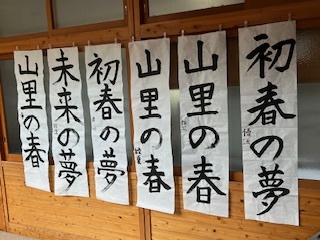 初春の夢
山里の春
山里の春
初春の夢
未来の夢
山里の春